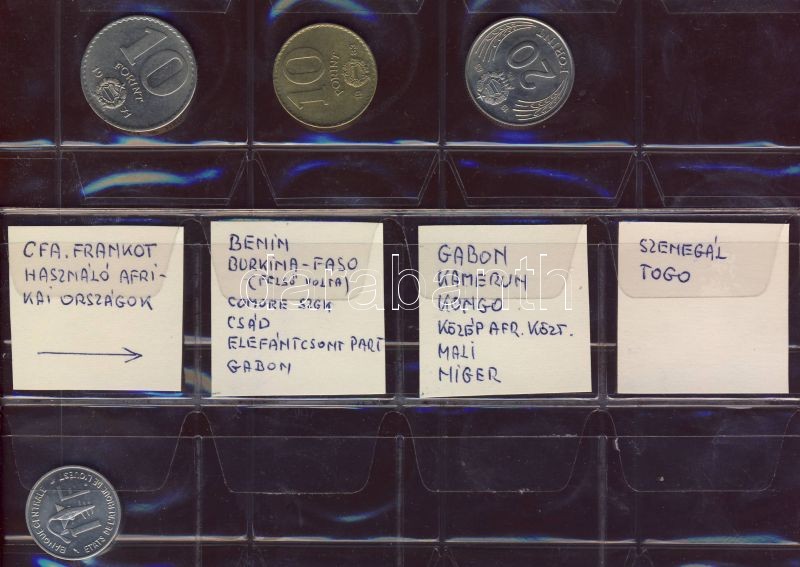 10
FORINT
19
10
FORINT
20
FORINT
CFA. FRANKOT
HASZNÁLÓ AFRI-
KAI ORSZÁGOK
BENIN
BURKINA-FASO
(FELSŐ VOLTA)
COMORE-SZGK
CSÁD
ELEFÁNTCSONT PART
GABON
GABON
KAMERUN
KONGO
KÖZÉP AFR. KÖZT.
MALI
NIGER
SZENEGÁL
TOGO
darabanth
BANQUE CENTRALE
ETATS DE L'AFRIQUE DE L'OUEST